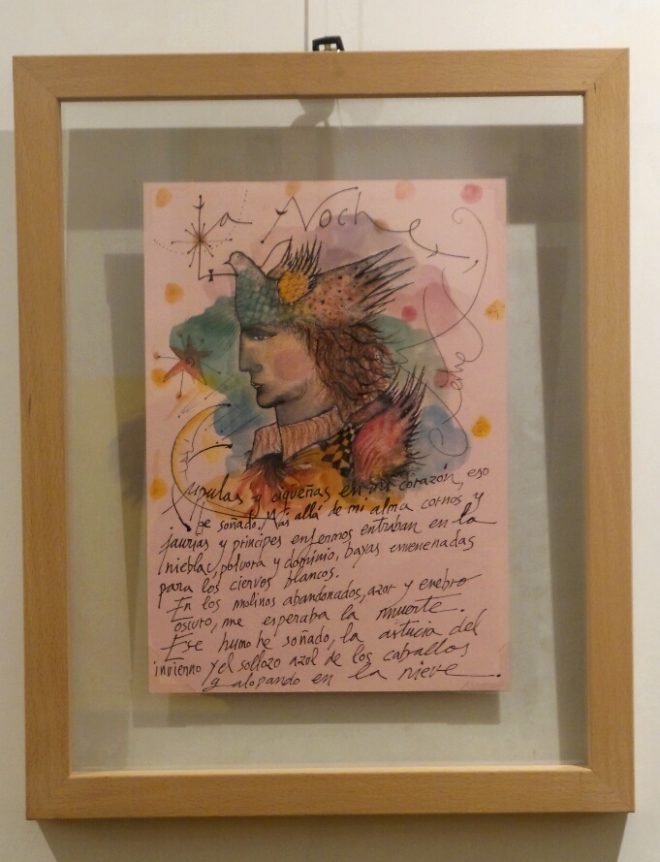 La Noche,
Cúpulas y cigüeñas en mi corazón, eso
he soñado. Más allá de mi alma cornos y
jaurías y príncipes enfermos entraban en la
niebla, pólvora y dominio, bayas envenenadas
para los ciervos blancos.
En los molinos abandonados, azor y enebro
oscuro, me esperaba la muerte.
Ese humo he soñado, la astucia del
invierno y el sollozo azul de los caballos
galopando en la nieve.